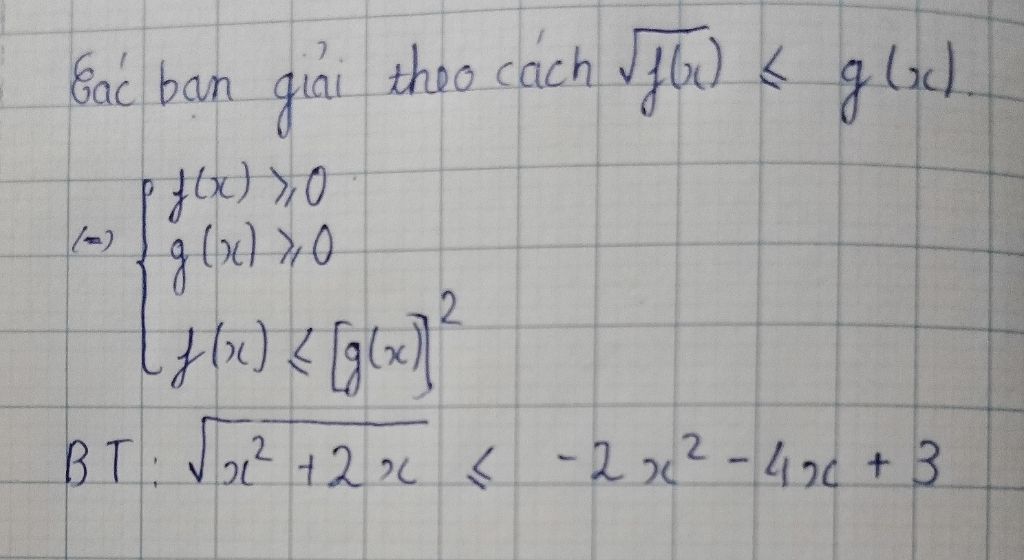 Các bạn giải theo cách √f(x) ≤ g(x).
(=) { f(x) ≥ 0
g(x) ≥ 0
f(x) ≤ [g(x)]²
BT: √x² + 2x ≤ -2x² - 4x + 3